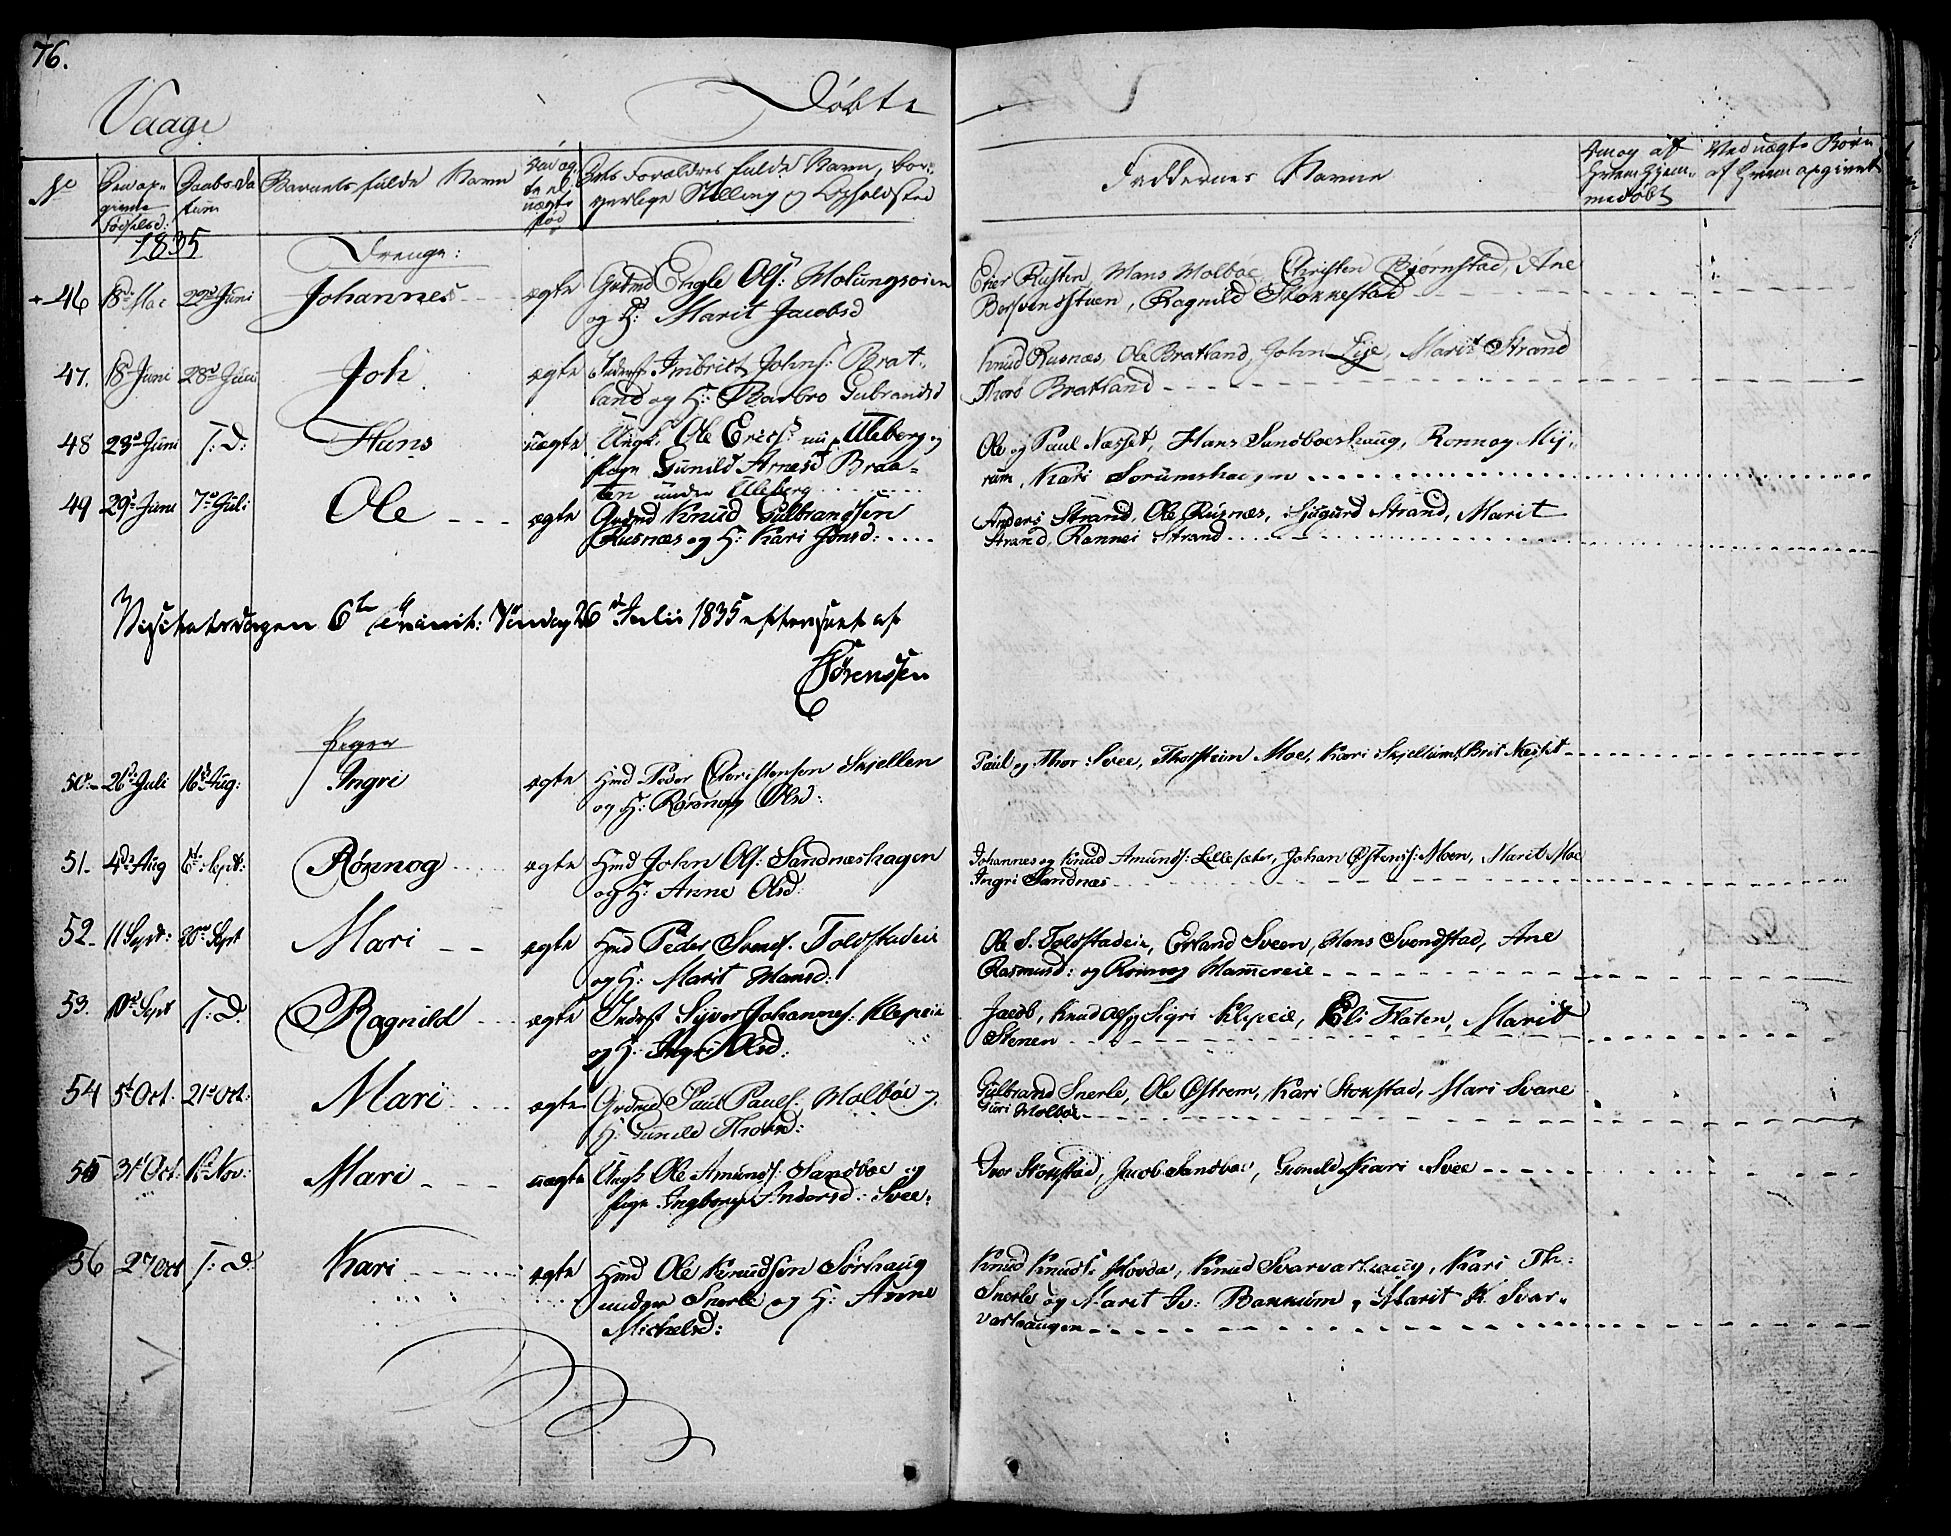 76.
Vaage
Døbte
No
Den opgivne Fødselsd:
Daabs Datum
Barnets fulde Navn
Om ægte el. uægte fød
Dets Forældres fulde Navn, borgerlige Stilling og Opholdsted
Faddernes Navne
Hvem hjemmedøbt
Ved uægte Børn af Hvem opgivet
1835
Drenge:
46 18d Mai 29d Juni Johannes ægte Grdmd Engle Ols: Molungsøien
og H: Marit Jacobsd
Rusten, Hans Molbøe, Christen Bjørnstad, Ane
Ragnild Stokkestad
47. 18d Juni 28d Juni Joh ægte Inderst Imbrict Johns: Brat-
land og H: Barbro Gubrandsd
Knud Rusnæs, Ole Bratland, John Lye, Marit Strand
Thorø Bratland
48 23d Juni S: D: Hans uægte Ungk. Ole Erics: Uleberg og
Pige Gunild Arnesd Braa-
ten under Uleberg
Ole og Paul Næsset, Hans Sandboeshaug, Ronnog My-
rum, Kari Sorumshaugen
49 29d Juni 7d Juli Ole ægte Grdmd Knud Gulbrandsen
Rusnæs og H: Kari Jonsd:
Anders Strand, Ole Rusnæs, Sjugurd Strand, Marit
Strand, Rannei Strand
Visitatsdagen 6te Trinit: Søndag 26d Julii 1835 efterseet af
Sørenssen
Piger
50 26d Juli 16d Aug: Ingri ægte Hmd Peder Christensen Skjellen
og H: Rønnog Olsd:
Paul og Thor Svee, Thorsteim Moe, Kari Skjellum, Brit Næsset
51. 4d Aug 6t Sept: Rønnog ægte Hmd John Ols: Sandnæshagen
og H: Anne Olsd:
Johannes og Knud Amunds: Lillesæter, Johan Østens: Moen, Marit Moe
Ingri Sandnæs
52. 11 Sept: 20d Sept Mari ægte Hmd Peder Svends. Toldstadeie
og H: Marit Hansd:
Ole S. Toldstadeie, Erland Sveen, Hans Svendstad, Ane
Rasmusd: og Rønnog Hammereie
53. 10d Sept S: D. Ragnild ægte Inderst Syver Johannes: Klepeie
og H: Ingri Olsd:
Jacob, Knud Ols og Sigri Klepeie, Eli Flaten, Marit
Stenen
54 5t Oct. 21d Oct: Mari ægte Grdmd Paul Pauls: Molbøe og
H: Gunild Thorsd:
Gulbrand Snerle, Ole Østrem, Kari Stokstad, Mari Svare
Guri Molbøe
55 31t Oct: 1t Nov: Mari uægte Ungk. Ole Amunds: Sandboe og
Pige Ingborg Andersd: Svee
Iver Stokstad, Jacob Sandboe, Gunild og Kari Svee
56 27 Oct S: D: Kari ægte Hmd Ole Knudsen Sørhaug
under Snerle og H: Anne
Michelsd:
Knud Knuds: Hovda, Knud Svarvarhaug, Kari Th:
Snerle og Marit Iv: Bakkum, Marit K. Svar-
varhaugen